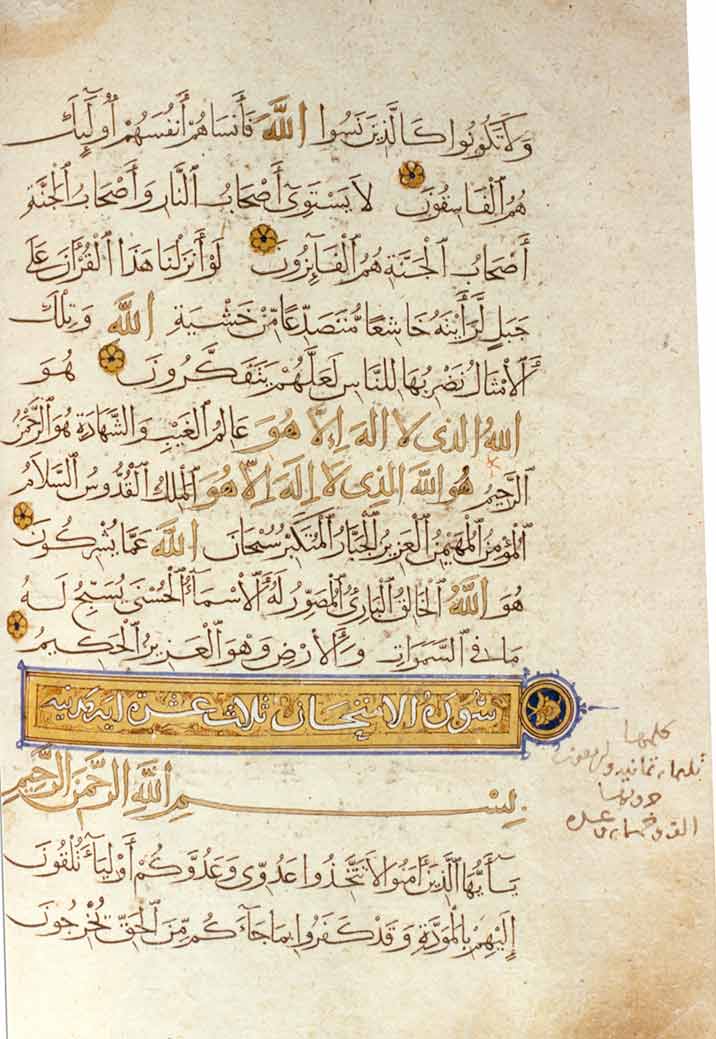 وَلَا تَكُونُوا كَالَّذِينَ نَسُوا اللَّهَ فَأَنسَاهُمْ أَنفُسَهُمْ أُوْلَٰٓئِكَ
هُمُ الْفَاسِقُونَ لَا يَسْتَوِىٓ أَصْحَابُ النَّارِ وَأَصْحَابُ الْجَنَّةِ
أَصْحَابُ الْجَنَّةِ هُمُ الْفَآئِزُونَ لَوْ أَنزَلْنَا هَٰذَا الْقُرْءَانَ عَلَىٰ
جَبَلٍ لَّرَأَيْتَهُ خَاشِعًا مُّتَصَدِّعًا مِّنْ خَشْيَةِ اللَّهِ وَتِلْكَ
الْأَمْثَالُ نَضْرِبُهَا لِلنَّاسِ لَعَلَّهُمْ يَتَفَكَّرُونَ هُوَ
اللَّهُ الَّذِى لَا إِلَٰهَ إِلَّا هُوَ عَالِمُ الْغَيْبِ وَالشَّهَادَةِ هُوَ الرَّحْمَٰنُ
الرَّحِيمُ هُوَ اللَّهُ الَّذِى لَا إِلَٰهَ إِلَّا هُوَ الْمَلِكُ الْقُدُّوسُ السَّلَامُ
الْمُؤْمِنُ الْمُهَيْمِنُ الْعَزِيزُ الْجَبَّارُ الْمُتَكَبِّرُ سُبْحَانَ اللَّهِ عَمَّا يُشْرِكُونَ
هُوَ اللَّهُ الْخَالِقُ الْبَارِئُ الْمُصَوِّرُ لَهُ الْأَسْمَآءُ الْحُسْنَىٰ يُسَبِّحُ لَهُ
مَا فِى السَّمَٰوَاتِ وَالْأَرْضِ وَهُوَ الْعَزِيزُ الْحَكِيمُ
سورة الامتحان ثلاث عشرة اية مدنية
بِسْمِ اللَّهِ الرَّحْمَٰنِ الرَّحِيمِ
يَٰٓأَيُّهَا الَّذِينَ ءَامَنُوا لَا تَتَّخِذُوا عَدُوِّى وَعَدُوَّكُمْ أَوْلِيَآءَ تُلْقُونَ
إِلَيْهِمْ بِالْمَوَدَّةِ وَقَدْ كَفَرُوا بِمَا جَآءَكُمْ مِّنَ الْحَقِّ يُخْرِجُونَ
كلمها